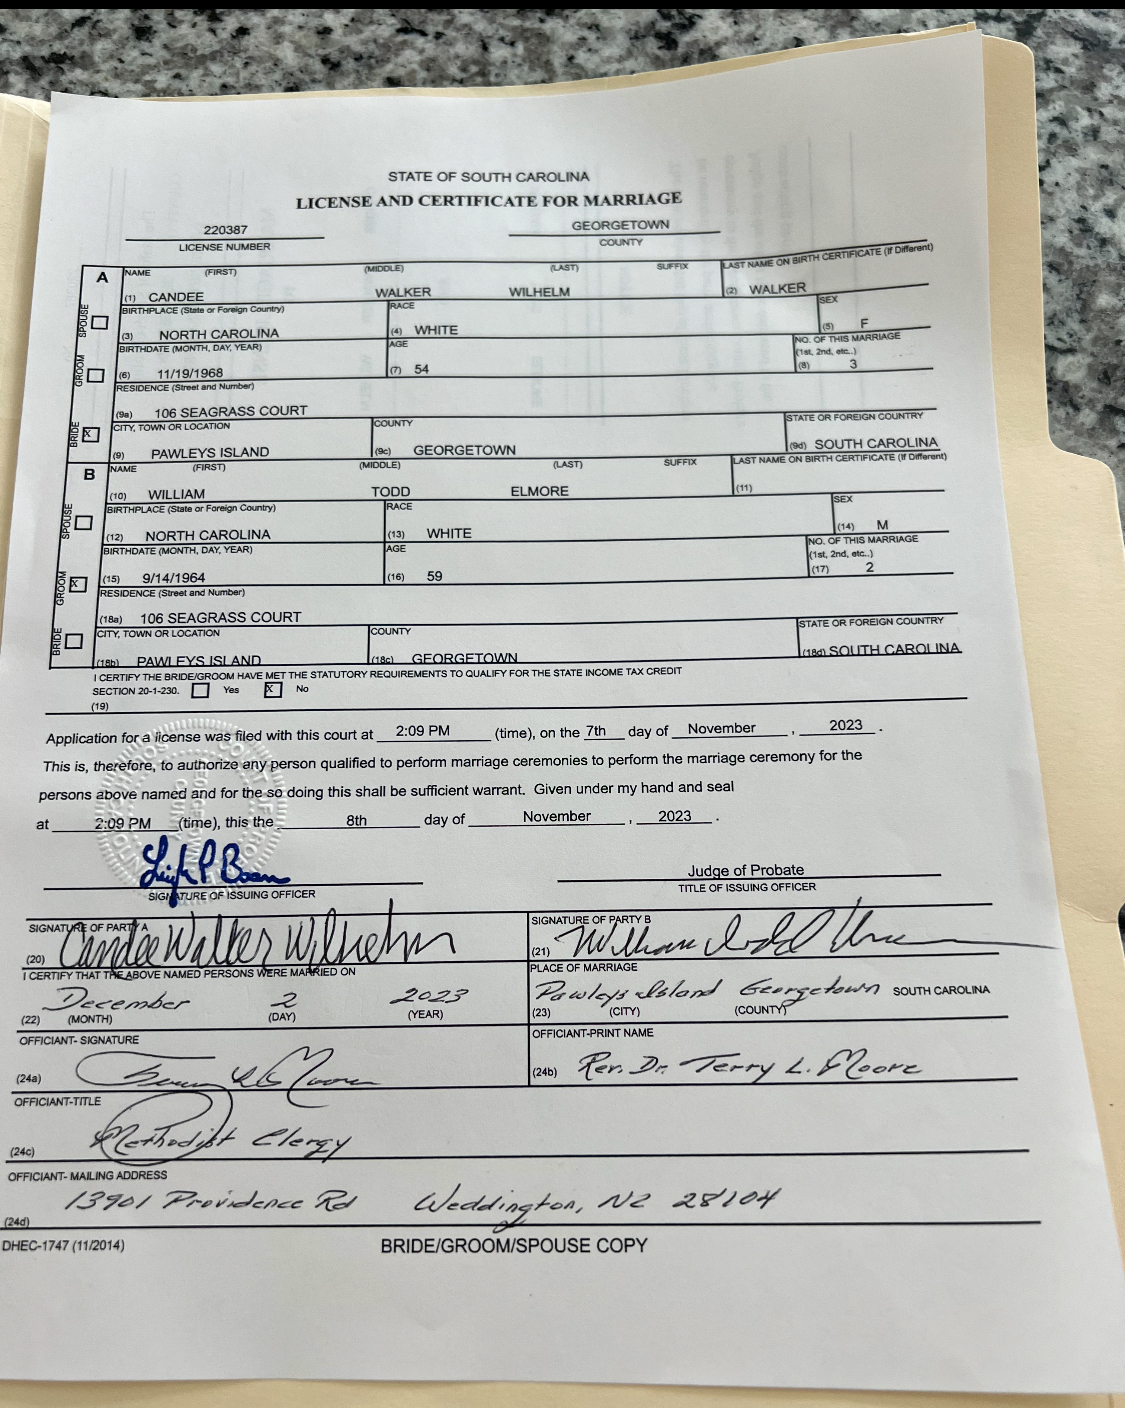 STATE OF SOUTH CAROLINA
LICENSE AND CERTIFICATE FOR MARRIAGE
220387 GEORGETOWN
LICENSE NUMBER COUNTY
A
NAME (FIRST) (MIDDLE) (LAST) SUFFIX LAST NAME ON BIRTH CERTIFICATE (If Different)
(1) CANDEE WALKER WILHELM (2) WALKER
BIRTHPLACE (State or Foreign Country) RACE SEX
(3) NORTH CAROLINA (4) WHITE (5) F
BIRTHDATE (MONTH, DAY, YEAR) AGE NO. OF THIS MARRIAGE
(1st, 2nd, etc..)
(6) 11/19/1968 (7) 54 (8) 3
RESIDENCE (Street and Number)
(9a) 106 SEAGRASS COURT
CITY, TOWN OR LOCATION COUNTY STATE OR FOREIGN COUNTRY
(9) PAWLEYS ISLAND (9c) GEORGETOWN (9d) SOUTH CAROLINA
SPOUSE
GROOM
BRIDE X
B
NAME (FIRST) (MIDDLE) (LAST) SUFFIX LAST NAME ON BIRTH CERTIFICATE (If Different)
(10) WILLIAM TODD ELMORE (11)
BIRTHPLACE (State or Foreign Country) RACE SEX
(12) NORTH CAROLINA (13) WHITE (14) M
BIRTHDATE (MONTH, DAY, YEAR) AGE NO. OF THIS MARRIAGE
(1st, 2nd, etc..)
(15) 9/14/1964 (16) 59 (17) 2
RESIDENCE (Street and Number)
(18a) 106 SEAGRASS COURT
CITY, TOWN OR LOCATION COUNTY STATE OR FOREIGN COUNTRY
(18b) PAWLEYS ISLAND (18c) GEORGETOWN (18d) SOUTH CAROLINA
SPOUSE
GROOM X
BRIDE
I CERTIFY THE BRIDE/GROOM HAVE MET THE STATUTORY REQUIREMENTS TO QUALIFY FOR THE STATE INCOME TAX CREDIT
SECTION 20-1-230. Yes X No
(19)
Application for a license was filed with this court at 2:09 PM (time), on the 7th day of November , 2023 .
This is, therefore, to authorize any person qualified to perform marriage ceremonies to perform the marriage ceremony for the
persons above named and for the so doing this shall be sufficient warrant. Given under my hand and seal
at 2:09 PM (time), this the 8th day of November , 2023 .
Judge of Probate
SIGNATURE OF ISSUING OFFICER TITLE OF ISSUING OFFICER
SIGNATURE OF PARTY A SIGNATURE OF PARTY B
(20) Candee Walker Wilhelm (21) William Todd
I CERTIFY THAT THE ABOVE NAMED PERSONS WERE MARRIED ON PLACE OF MARRIAGE
December 2 2023 Pawleys Island Georgetown SOUTH CAROLINA
(22) (MONTH) (DAY) (YEAR) (23) (CITY) (COUNTY)
OFFICIANT- SIGNATURE OFFICIANT-PRINT NAME
(24a) (24b) Rev. Dr. Terry L. Moore
OFFICIANT-TITLE
(24c) Methodist Clergy
OFFICIANT- MAILING ADDRESS
(24d) 13901 Providence Rd Weddington, NC 28104
DHEC-1747 (11/2014) BRIDE/GROOM/SPOUSE COPY